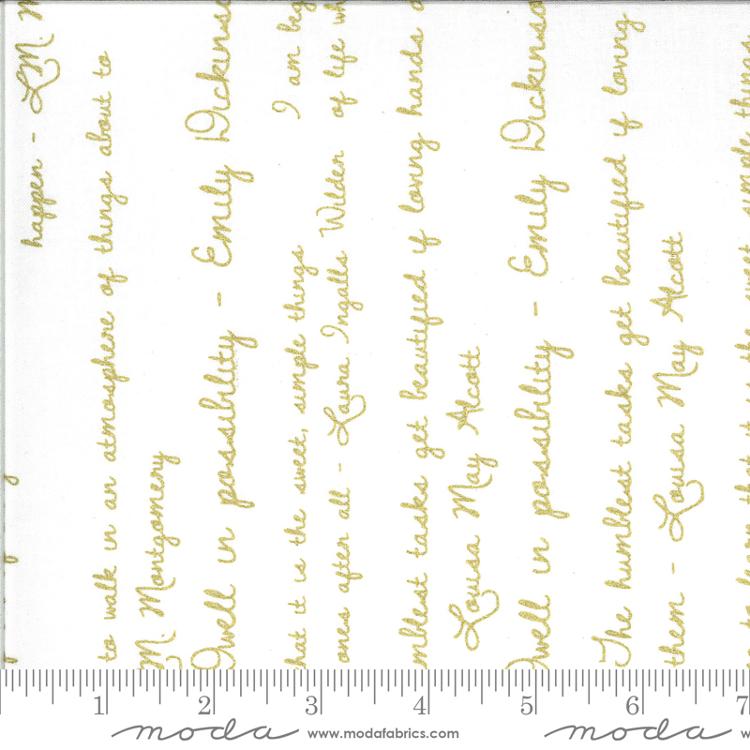 happen - L.M.
to walk in an atmosphere of things about to
M. Montgomery
Dwell in possibility - Emily Dickinso
I am beg
hat it is the sweet, simple things
of life wh
ones after all - Laura Ingalls Wilder
mblest tasks get beautified if loving hands
Louisa May Alcott
Dwell in possibility - Emily Dickinso
The humblest tasks get beautified if loving
them - Louisa May Alcott
to learn that it is the sweet, simple things
1 2 3 4 5 6 7
moda www.modafabrics.com moda